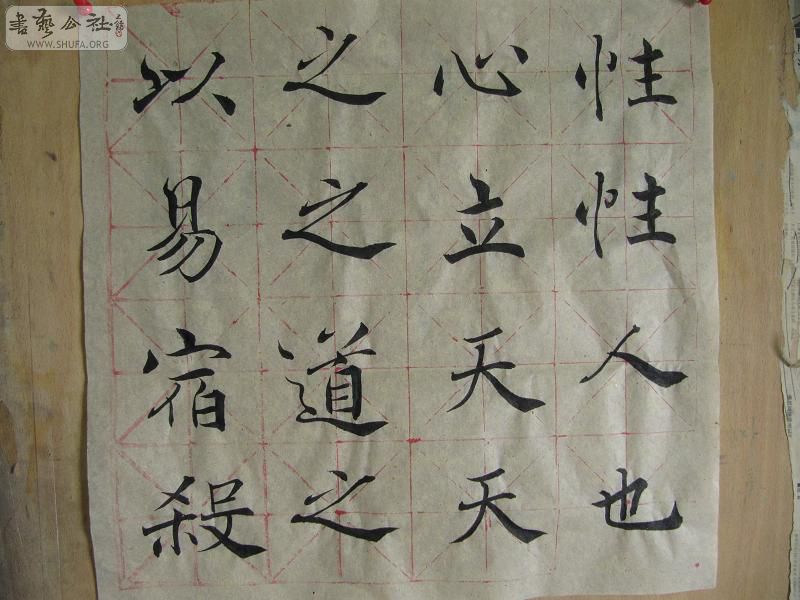 性性人也
心立天天
之之道之
以易宿殺
書藝公社
WWW.SHUFA.ORG